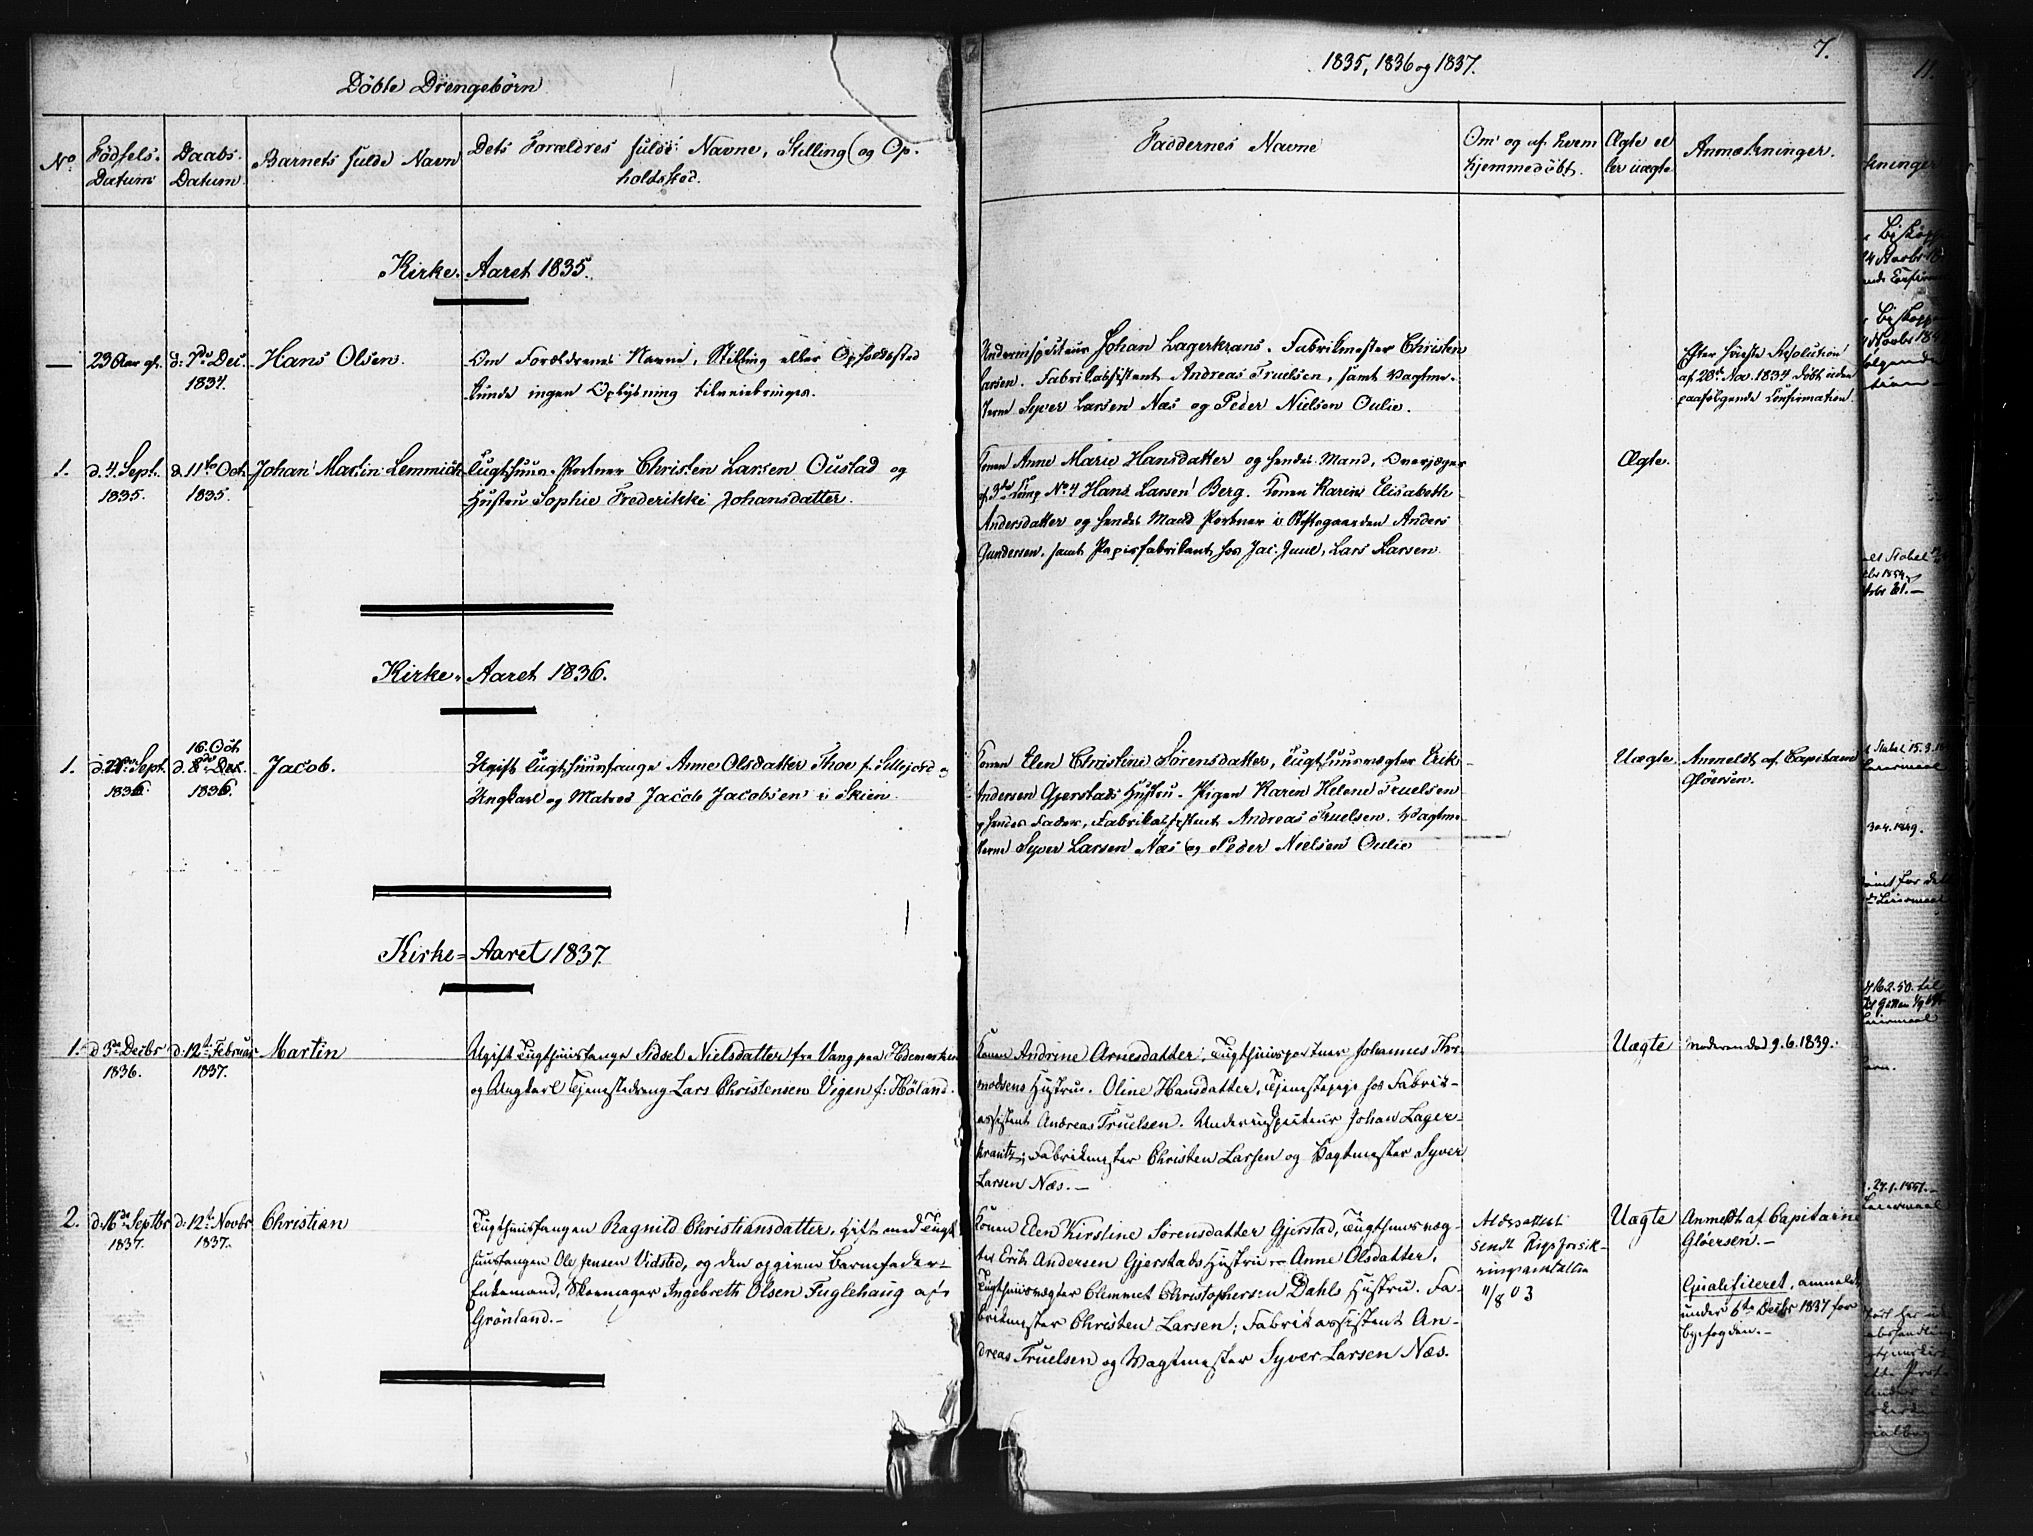 Döbte Drengebörn
1835, 1836 og 1837.
7.
No
Födsels-
Datum
Daabs-
Datum.
Barnets fulde Navn
Dets Forældres fulde Navne, Stilling (og Op-
holdssted.
Faddernes Navne
Om og af hvem
hjemmedöbt.
Ægte el
ler uægte
Anmærkninger.
Kirke-Aaret 1835.
— 23 Aar gl.
d: 7de Dec.
1834.
Hans Olsen.
Om Forældrenes Navne, Stilling eller Opholdssted
kunde ingen Oplysning tilveiebringes.
Underinspecteur Johan Lagerkrans. Fabrikmester Christen
Larsen. Fabrikassistent Andreas Truelsen, samt Vagtme-
sterne Syver Larsen Næs og Peder Nielsen Oulie.
Efter höieste Resolution
af 28de Nov. 1834 döbt uden
paafölgende Confirmation.
1.
d. 4. Sept.
1835.
d. 11te Oct.
1835.
Johan Martin Lemmich
Tugthuus-Portner Christen Larsen Oustad og
Hustru Sophie Frederikke Johansdatter.
Konen Anne Marie Hansdatter og hendes Mand, Overjæger
af 3die Comp No 4 Hans Larsen Berg. Konen Karine Elisabeth
Andersdatter og hendes Mand Portner i Stiftsgaarden Anders
Gundersen. samt Papirfabrikant hos Jac. Juul, Lars Larsen.
Ægte.
Kirke-Aaret 1836.
1.
d. Sept.
1836.
16. Oct.
d. 8de Dec.
1836.
Jacob.
Ugift Tugthuusfange Anne Olsdatter Thoe f. Sillejord og
Ungkarl og Matros Jacob Jacobsen i Skien.
Konen Elen Christine Sörensdatter, Tugthuusvægter Erik
Andersen Gjerstads Hustru. Pigen Karen Helene Truelsen
og hendes Fader, Fabrikassistent Andreas Truelsen. Vagtme-
sterne Syver Larsen Næs og Peder Nielsen Oulie
Uægte
Anmeldt af Capitain
Glöersen.
Kirke-Aaret 1837.
1.
d 3de Decbr
1836.
d: 12te Februar
1837.
Martin
Ugift Tugthuusfange Sidsel Nielsdatter fra Vang paa Hedemarken
og Ungkarl Tjenestedreng Lars Christensen Vigen f: Höland.
Konen Andrine Arnesdatter, Tugthuusportner Johannes Thor-
modsens Hustru. Oline Hansdatter, Tjenestepige hos Fabrik-
assistent Andreas Truelsen. Underinspecteur Johan Lager-
krantz; Fabrikmester Christen Larsen og Vagtmester Syver
Larsen Næs.—
Uægte
Moderen död 9.6.1839.
2.
d. 16de Septbr
1837.
d: 12te Novbr
1837.
Christian
Tugthuusfangen Ragnild Christiansdatter, gift med Tugt
huusfangen Ole Jensen Vidsted, og den opgivne Barnefader
Enkemand, Skoemager Ingebreth Olsen Fuglehaug af
Grönland.—
Konen Elen Kirstine Sörensdatter Gjerstad, Tugthuusvæg-
ter Erik Andersen Gjerstads Hustru — Anne Olsdatter,
Tugthuusvægter Clemmet Christophersen Dahls Hustru. Fa-
brikmester Christen Larsen; Fabrikassistent An-
dreas Truelsen og Vagtmester Syver Larsen Næs.
Aldersattest
sendt Rigsforsik-
ringsanstalten
11/8 03
Uægte
Anmeldt af Capitaine
Glöersen.—
Qualificeret, anmeldt
under 6te Decbr 1837 for
byefogden.—
11.